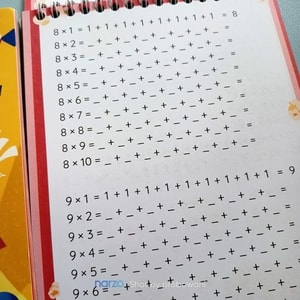 8 × 1 = 1 + 1 + 1 + 1 + 1 + 1 + 1 + 1 = 8
8 × 2 = _ + _ + _ + _ + _ + _ + _ + _ =
8 × 3 = _ + _ + _ + _ + _ + _ + _ + _ =
8 × 4 = _ + _ + _ + _ + _ + _ + _ + _ =
8 × 5 = _ + _ + _ + _ + _ + _ + _ + _ =
8 × 6 = _ + _ + _ + _ + _ + _ + _ + _ =
8 × 7 = _ + _ + _ + _ + _ + _ + _ + _ =
8 × 8 = _ + _ + _ + _ + _ + _ + _ + _ =
8 × 9 = _ + _ + _ + _ + _ + _ + _ + _ =
8 × 10 = _ + _ + _ + _ + _ + _ + _ + _ =
9 × 1 = 1 + 1 + 1 + 1 + 1 + 1 + 1 + 1 + 1 = 9
9 × 2 = _ + _ + _ + _ + _ + _ + _ + _ + _ =
9 × 3 = _ + _ + _ + _ + _ + _ + _ + _ + _ =
9 × 4 = _ + _ + _ + _ + _ + _ + _ + _ + _ =
9 × 5 = _ + _ + _ + _ + _ + _ + _ + _ + _ =
9 × 6 = _ + _ + _ + _ + _ + _ + _ + _ + _ =
narzo Shot by